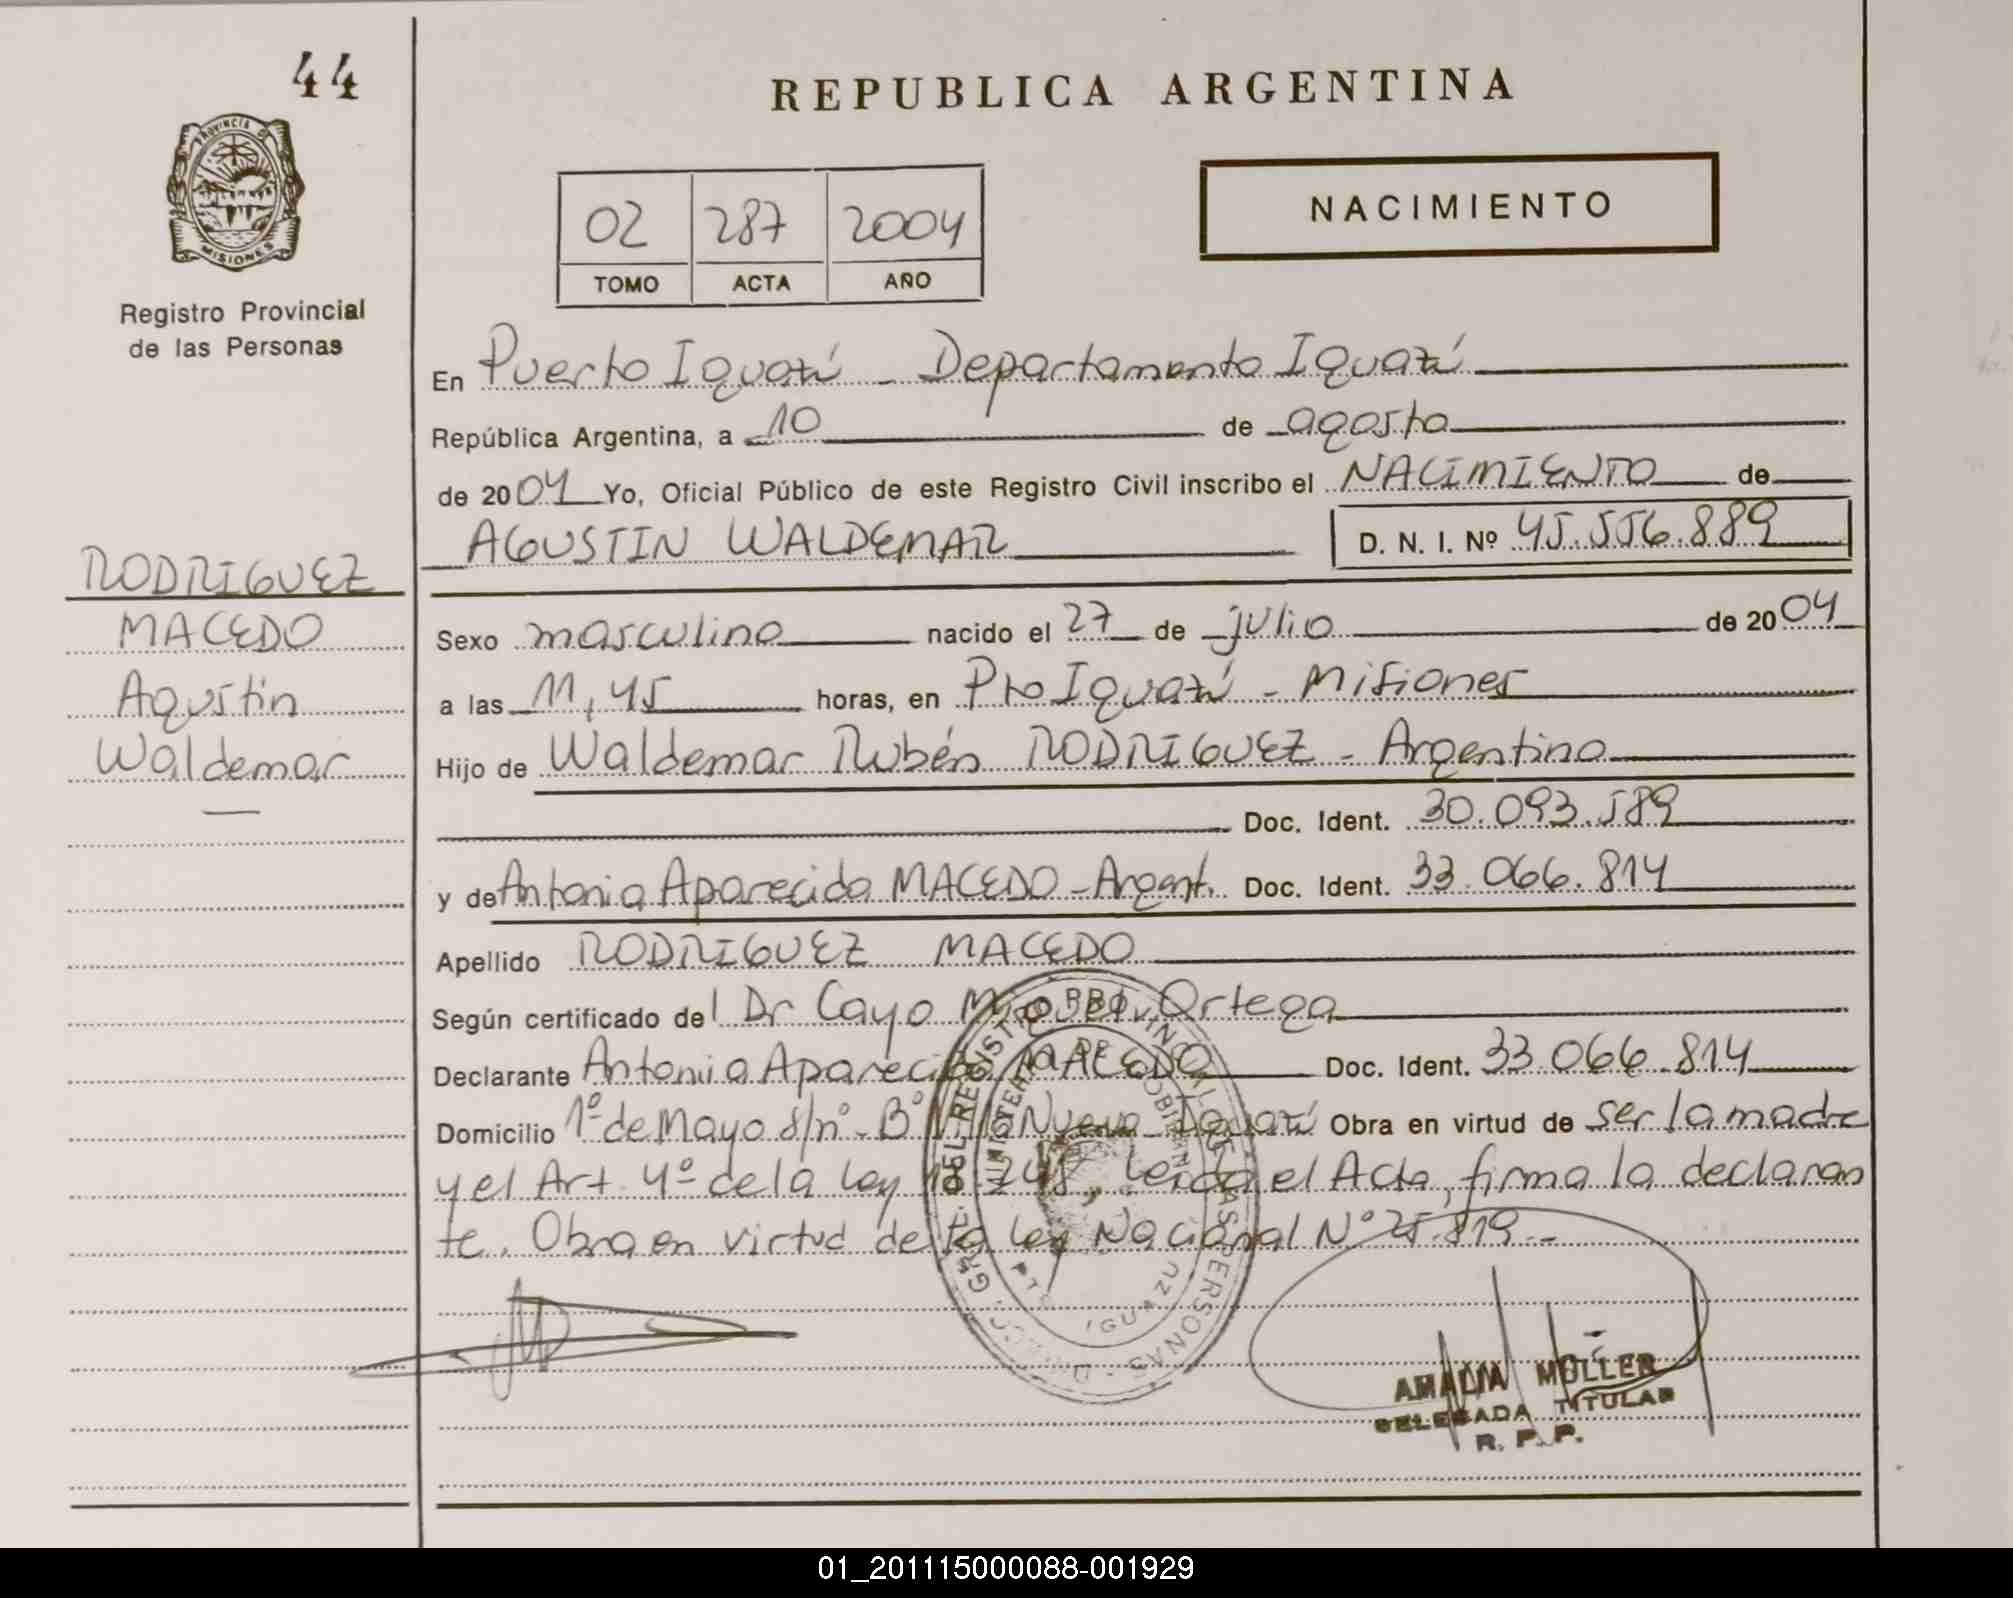 44
REPUBLICA ARGENTINA
PROVINCIA DE MISIONES
Registro Provincial
de las Personas
02 287 2004
TOMO ACTA AÑO
NACIMIENTO
En Puerto Iguazú - Departamento Iguazú
República Argentina, a 10 de agosto
de 2004 Yo, Oficial Público de este Registro Civil inscribo el NACIMIENTO de
AGUSTIN WALDEMAR D. N. I. Nº 45.556.889
RODRIGUEZ
MACEDO
Agustin
Waldemar
Sexo masculino nacido el 27 de julio de 2004
a las 11,45 horas, en Pto Iguazú - Misiones
Hijo de Waldemar Rubén RODRIGUEZ - Argentino
Doc. Ident. 30.093.589
y de Antonia Aparecida MACEDO - Argent. Doc. Ident. 33.066.814
Apellido RODRIGUEZ MACEDO
Según certificado del Dr Cayo Miguel Ortega
Declarante Antonia Aparecida MACEDO Doc. Ident. 33.066.814
Domicilio 1º de Mayo s/nº - Bº Nueva Iguazú Obra en virtud de ser la madre
y el Art 4º de la Ley 18.248, Leída el Acta, firma la declaran
te. Obra en virtud de la Ley Nacional Nº 25.819 -
DEL REGISTRO PROVINCIAL DE LAS PERSONAS
PTO IGUAZU
AMALIA MÖLLER
DELEGADA TITULAR
R. P. P.
01_201115000088-001929